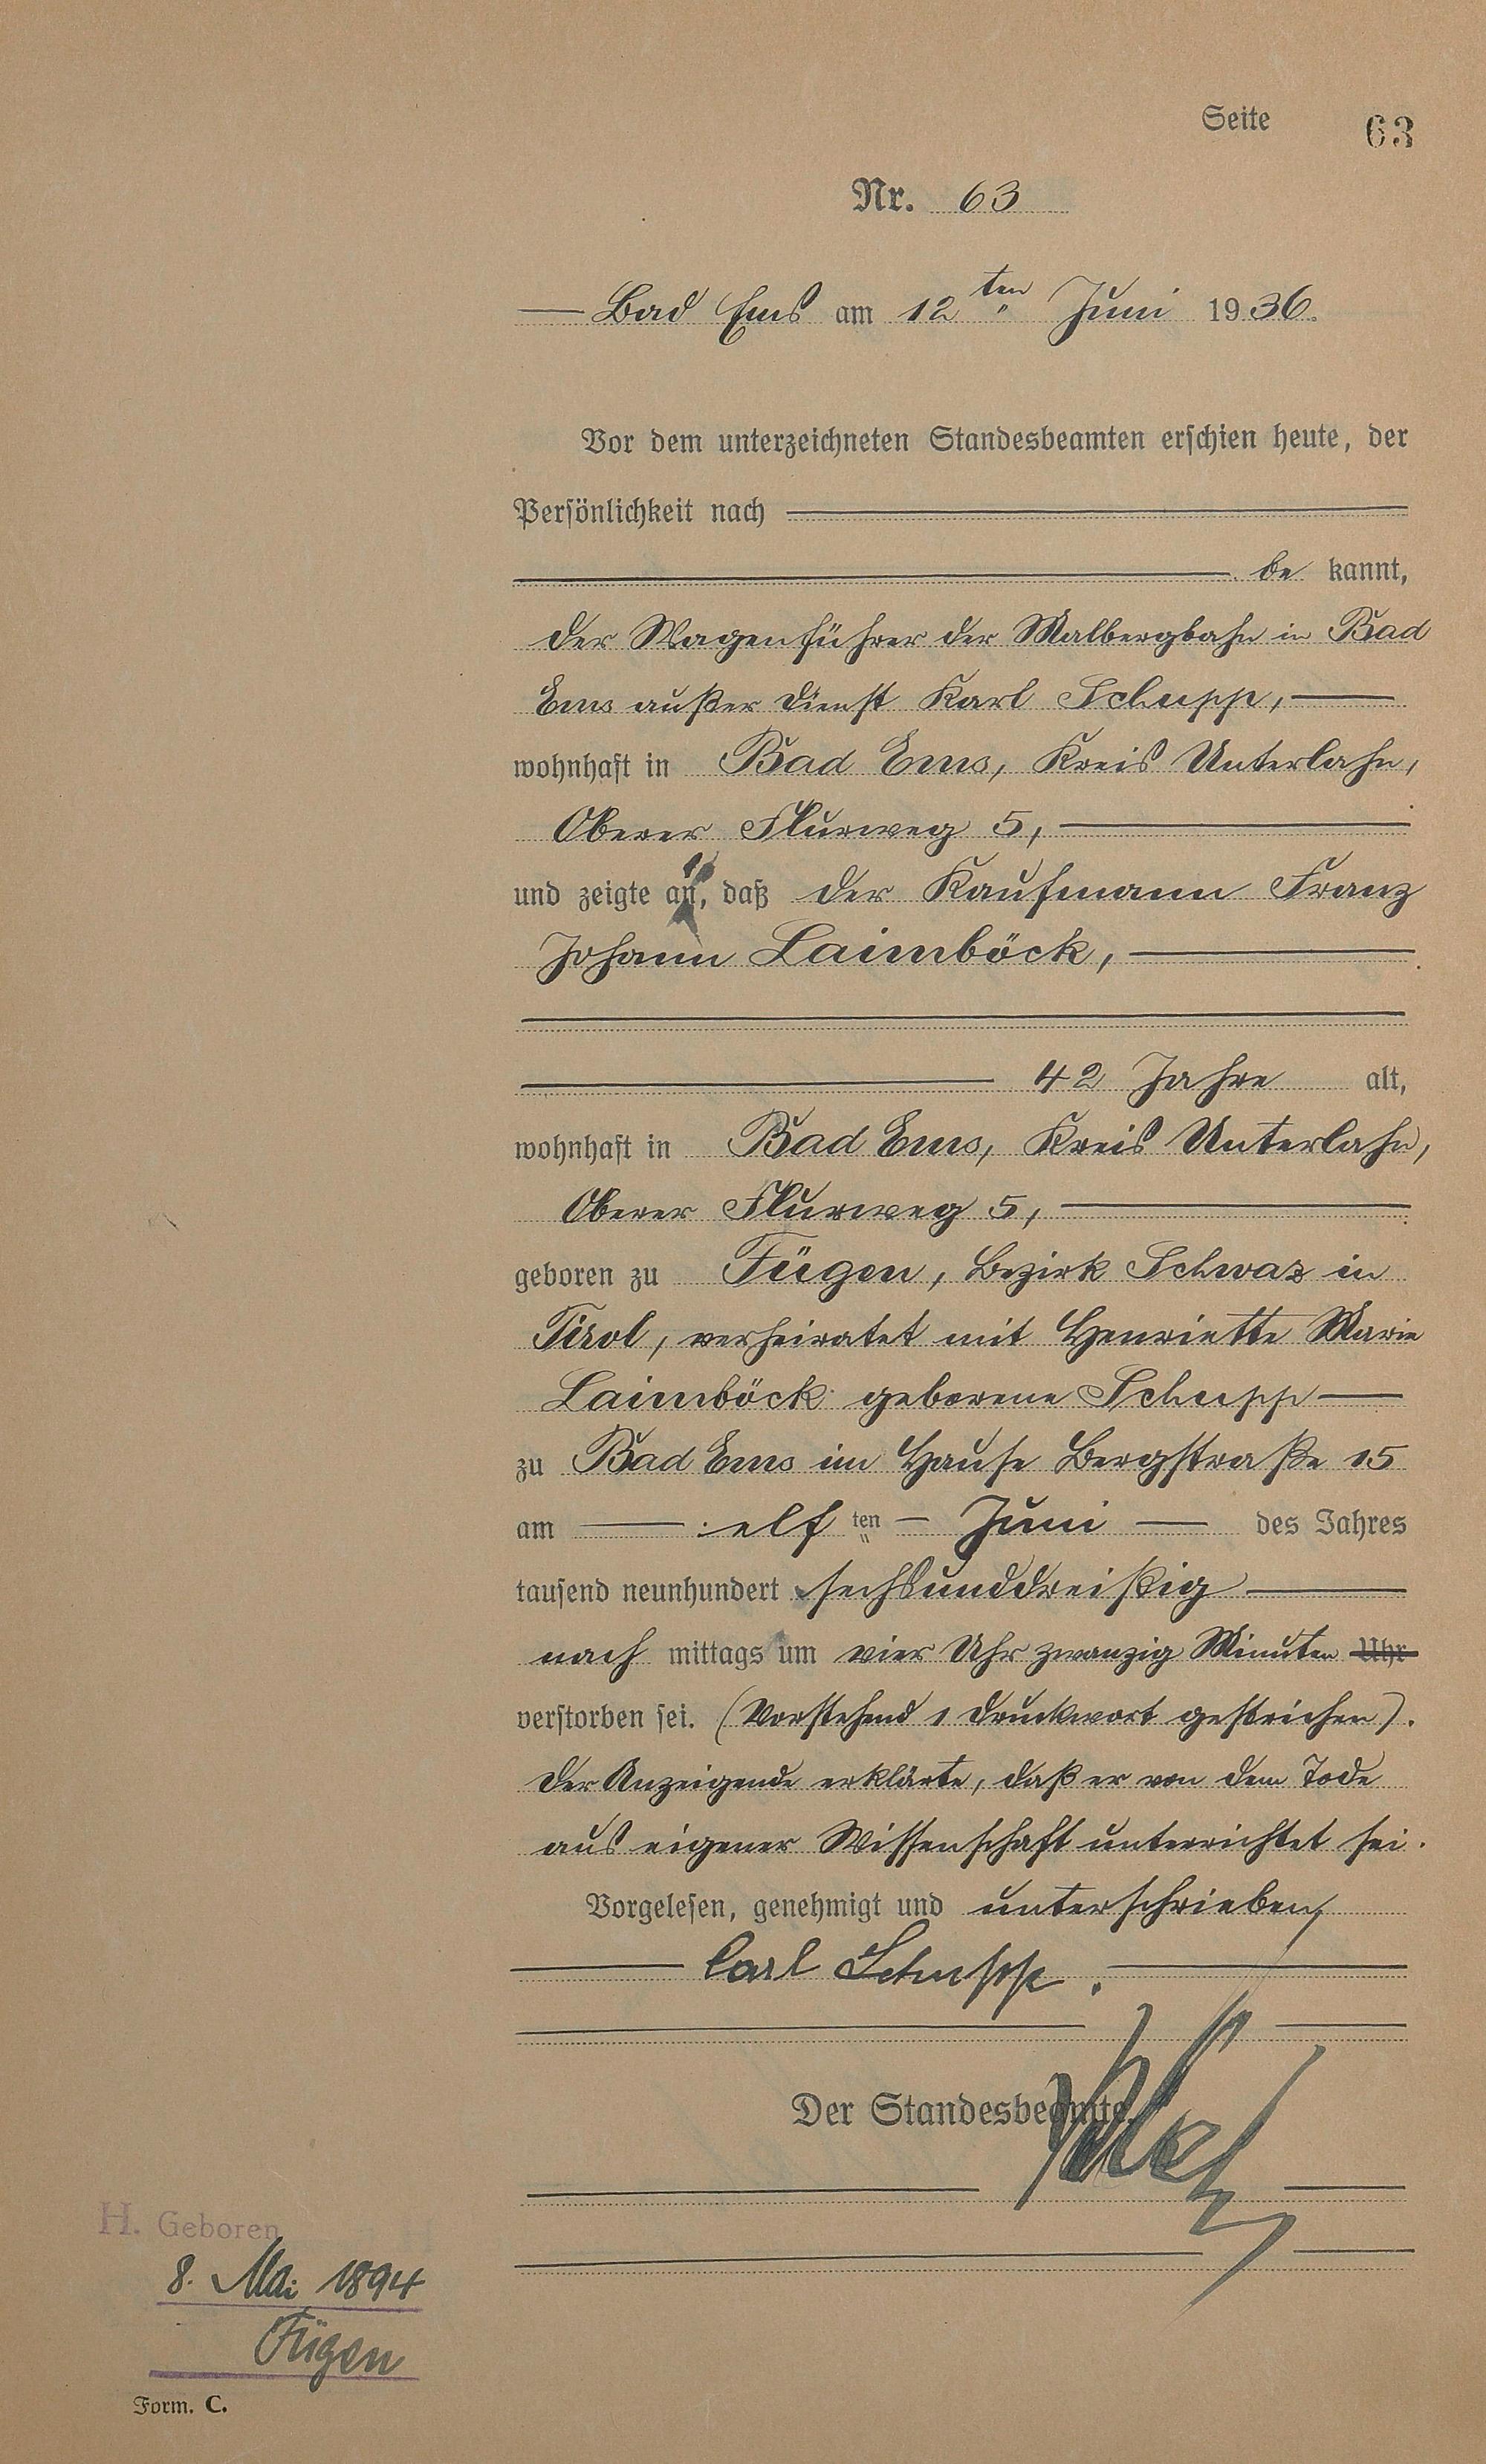 Seite 63
Nr. 63
Bad Ems am 12ten Juni 1936.
Vor dem unterzeichneten Standesbeamten erschien heute, der
Persönlichkeit nach
be kannt,
der Wagenführer der Malbergbahn in Bad
Ems außer Dienst Karl Schupp,
wohnhaft in Bad Ems, Kreis Unterlahn,
Oberer Flurweg 5,
und zeigte an, daß der Kaufmann Franz
Johann Laimböck,
42 Jahre alt,
wohnhaft in Bad Ems, Kreis Unterlahn,
Oberer Flurweg 5,
geboren zu Fügen, Bezirk Schwaz in
Tirol, verheiratet mit Henriette Marie
Laimböck geborene Schupp
zu Bad Ems im Hause Bergstraße 15
am elf ten Juni des Jahres
tausend neunhundert sechsunddreißig
nach mittags um vier Uhr zwanzig Minuten Uhr
verstorben sei. (Vorstehend 1 Druckwort gestrichen).
Der Anzeigende erklärte, daß er von dem Tode
aus eigener Wissenschaft unterrichtet sei.
Vorgelesen, genehmigt und unterschrieben
Carl Schupp.
Der Standesbeamte.
H. Geboren
8. Mai 1894
Fügen
Form. C.